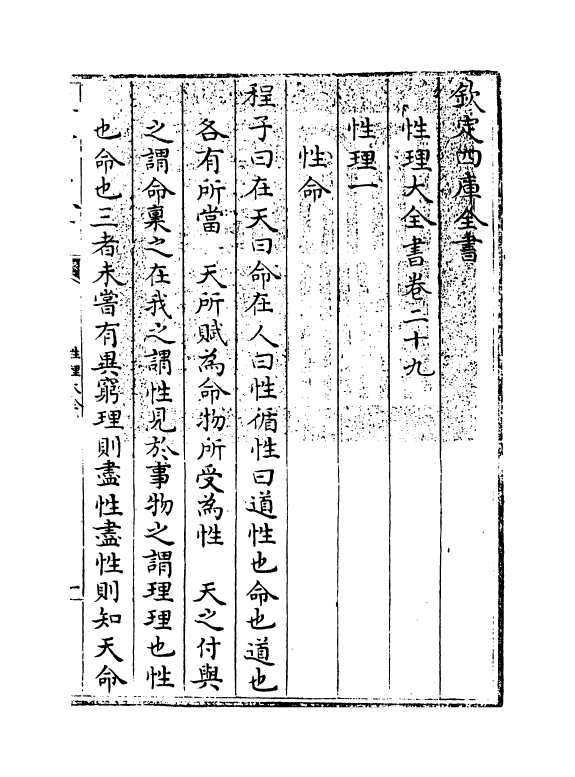 欽定四庫全書
性理大全書卷二十九
性理一
性命
程子曰在天曰命在人曰性循性曰道性也命也道也
各有所當　天所賦為命物所受為性　天之付與
之謂命稟之在我之謂性見於事物之謂理理也性
也命也三者未嘗有異窮理則盡性盡性則知天命
性理大全
一